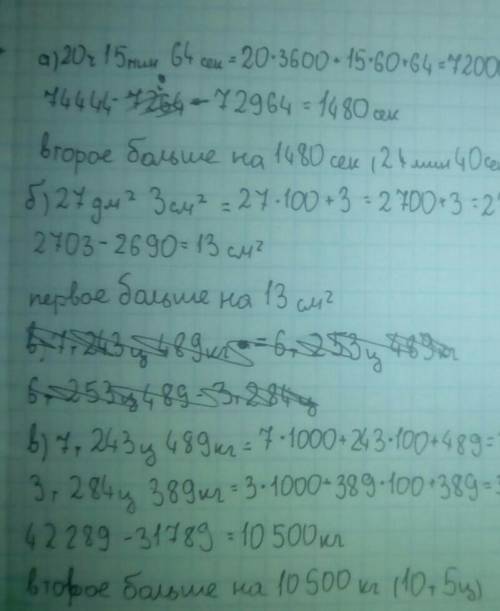 а) 20ч 15мин 64 сек = 20·3600+15·60+64 = 7200
74444 - 7264 - 72964 = 1480 сек
второе больше на 1480 сек (24 мин 40 се
б) 27 дм² 3 см² = 27·100+3 = 2700+3 = 2
2703 - 2690 = 13 см²
первое больше на 13 см²
6, 7т 243ц 489кг = 6т 253ц 489кг
6т 253ц 489 - 3т 284ц
в) 7т 243ц 489кг = 7·1000+243·100+489 =
3т 284ц 389кг = 3·1000+389·100+389 =
42289 - 31789 = 10500кг
второе больше на 10500 кг (10т 5ц)